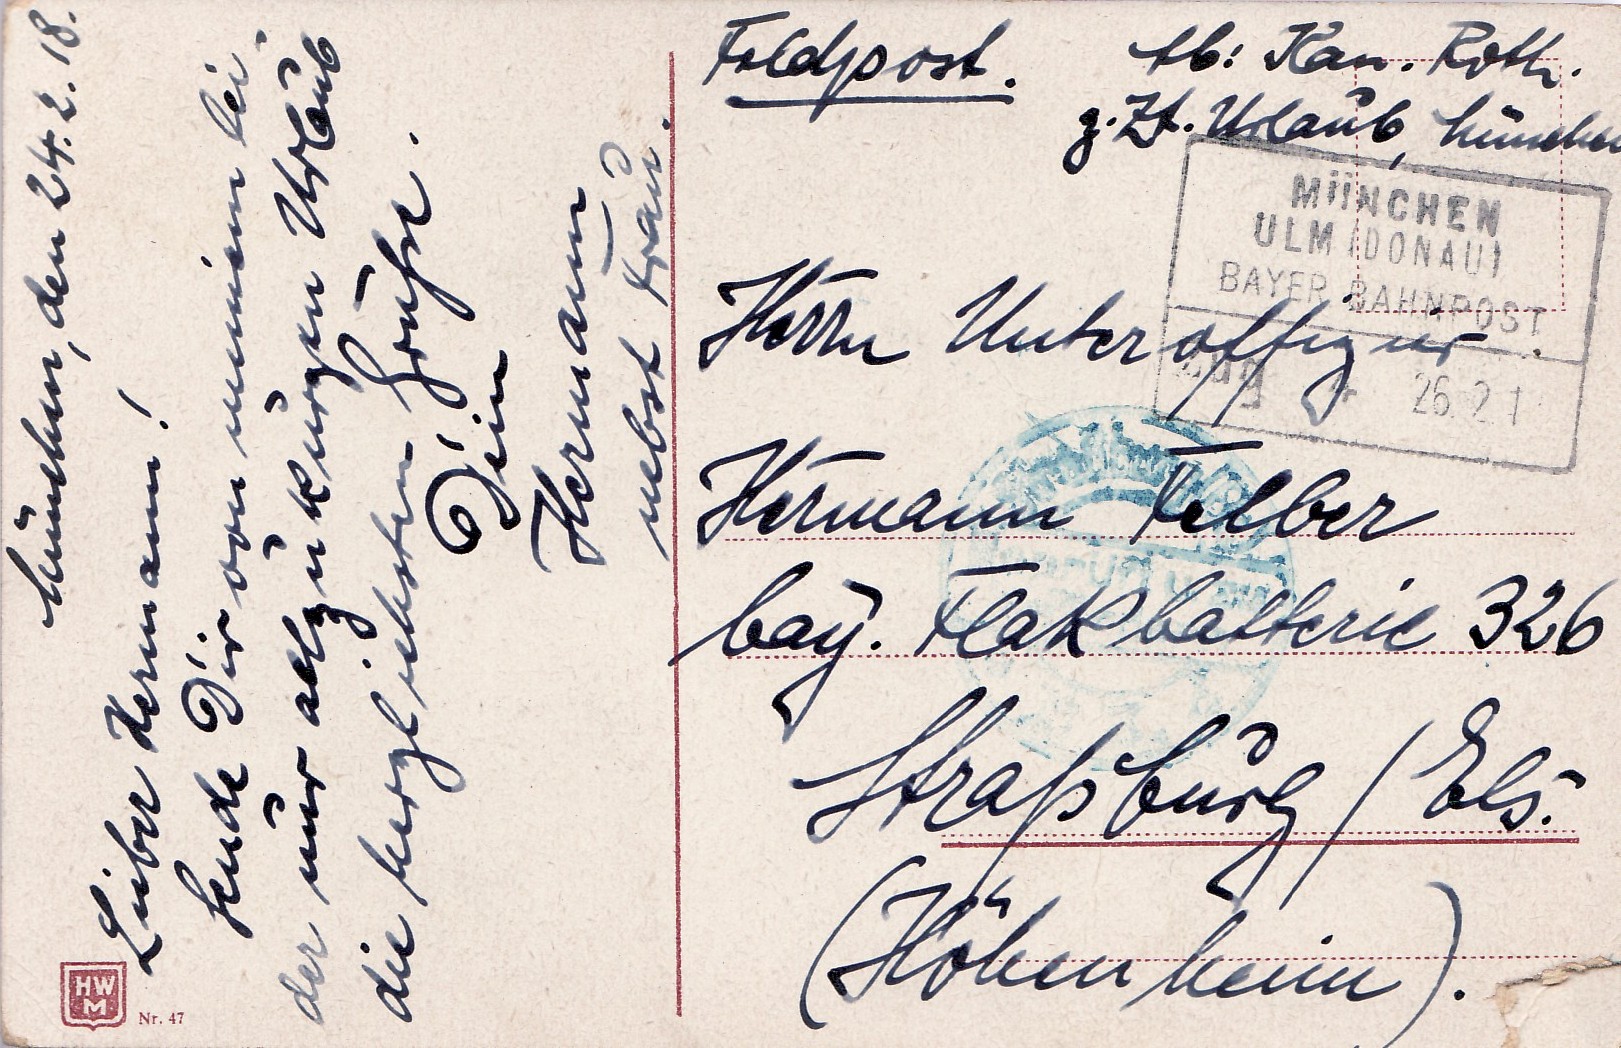 München, den 24.2.18.
Lieber Hermann!
Sende Dir von meinem lei-
der nur allzu kurzen Urlaub
die herzlichsten Grüße.
Dein
Hermann
nebst Frau.
Feldpost.
Ab: Kan. Roth.
z. Zt. Urlaub, München
MÜNCHEN
ULM (DONAU)
BAYER BAHNPOST
Zug
26.2.1
Herrn Unteroffizier
Hermann Felber
bay. Flakbatterie 326
Straßburg / Els.
(Höhenheim).
HW
M
Nr. 47